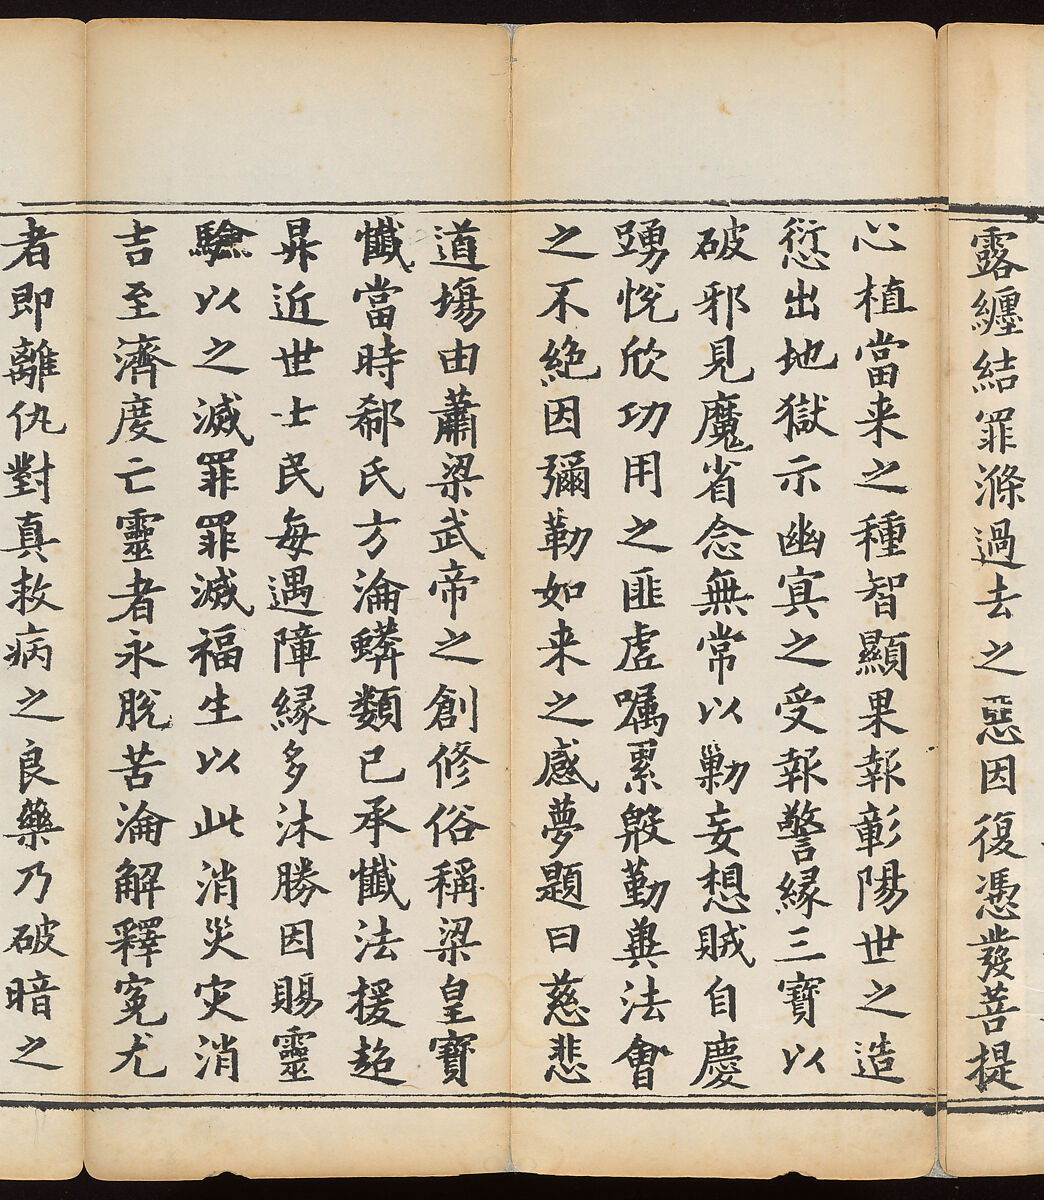 露纏結罪滌過去之惡因復憑發菩提
心植當来之種智顯果報彰陽世之造
愆出地獄示幽冥之受報警緣三寶以
破邪見魔省念無常以勦妄想賊自慶
踴悅欣功用之匪虛嘱累慇勤與法會
之不絕因彌勒如来之感夢題曰慈悲
道場由蕭梁武帝之創修俗稱梁皇寶
懺當時郗氏方淪蟒類已承懺法援超
昇近世士民每遇障緣多沐勝因賜靈
驗以之滅罪罪滅福生以此消災灾消
吉至濟度亡靈者永脫苦淪解釋冤尤
者即離仇對真救病之良藥乃破暗之